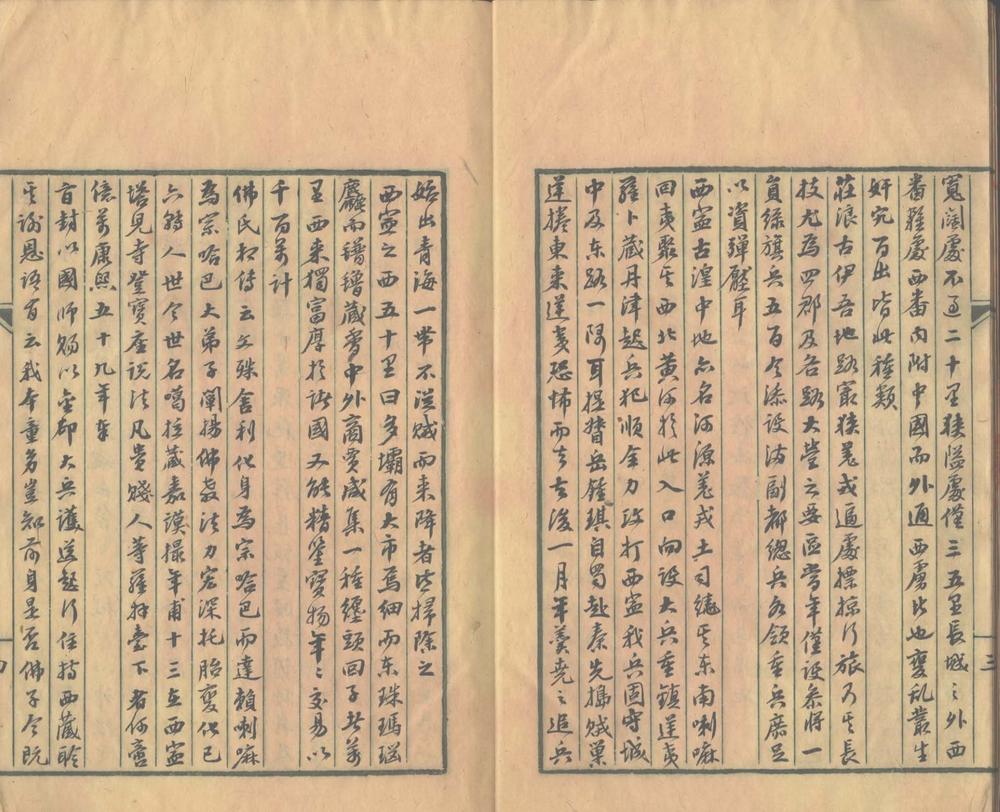 寬濶處不過二十里狹隘處僅三五里長城之外西
番雜處西番內附中國而外通西虜比也變亂叢生
奸宄百出皆此種類
莊浪古伊吾地路最狹羌戎逼處摽掠行旅乃其長
技尤為四郡及各路大營之要區當年僅設叅將一
員綠旗兵五百今添設滿副都總兵各領重兵庶足
以資彈壓耳
西寧古湟中地亦名河源羌戎土司繞其東南喇嘛
回夷聚其西北黄河於此入口向設大兵重鎮逆夷
羅卜藏丹津起兵犯順全力攻打西寧我兵固守城
中及东路一隅耳提督岳鍾琪自蜀赴秦先搗賊巢
逆捲東來逆夷恐怖而去去後一月年羹堯之追兵
三
始出青海一帶不從賊而来降者皆掃除之
西寧之西五十里曰多壩有大市焉細而东珠瑪瑙
麤而氆氇藏香中外商賈咸集一種纏頭回子者萬
里西来獨富厚於諸國又能精鉴寶物年年交易以
千百萬计
佛氏相傳云文殊舍利化身為宗哈巴而達賴喇嘛
為宗哈巴大弟子闡揚佛教法力宏深托胎變化已
六轉人世今世名噶拉藏嘉謨撮年甫十三在西寧
塔兒寺登寳座说法凡貴賤人等羅拜臺下者何啻
億萬康熙五十九年奉
旨封以國師賜以金印大兵護送起行住持西藏聆
其谢恩语有云我本童男豈知前身是否佛子今既